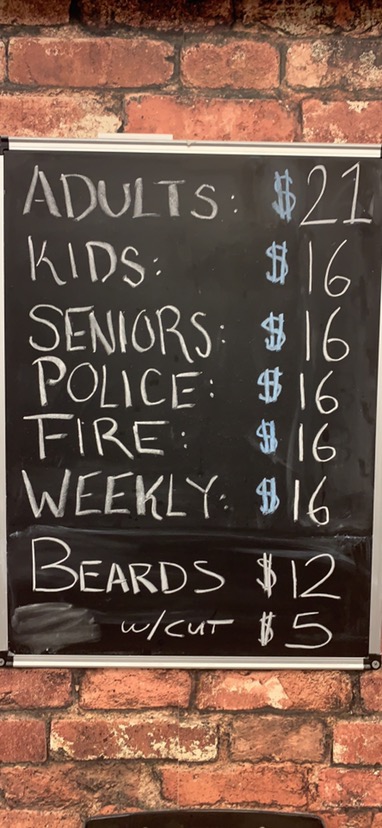 ADULTS: $21
KIDS: $16
SENIORS: $16
POLICE: $16
FIRE: $16
WEEKLY: $16
BEARDS $12
w/CUT $5